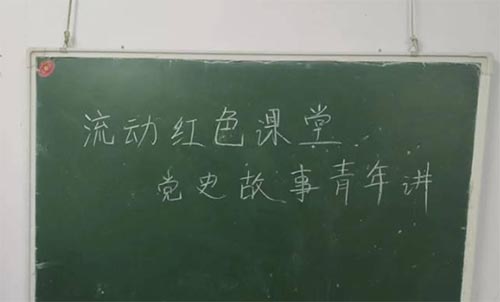 流动红色课堂
党史故事青年讲